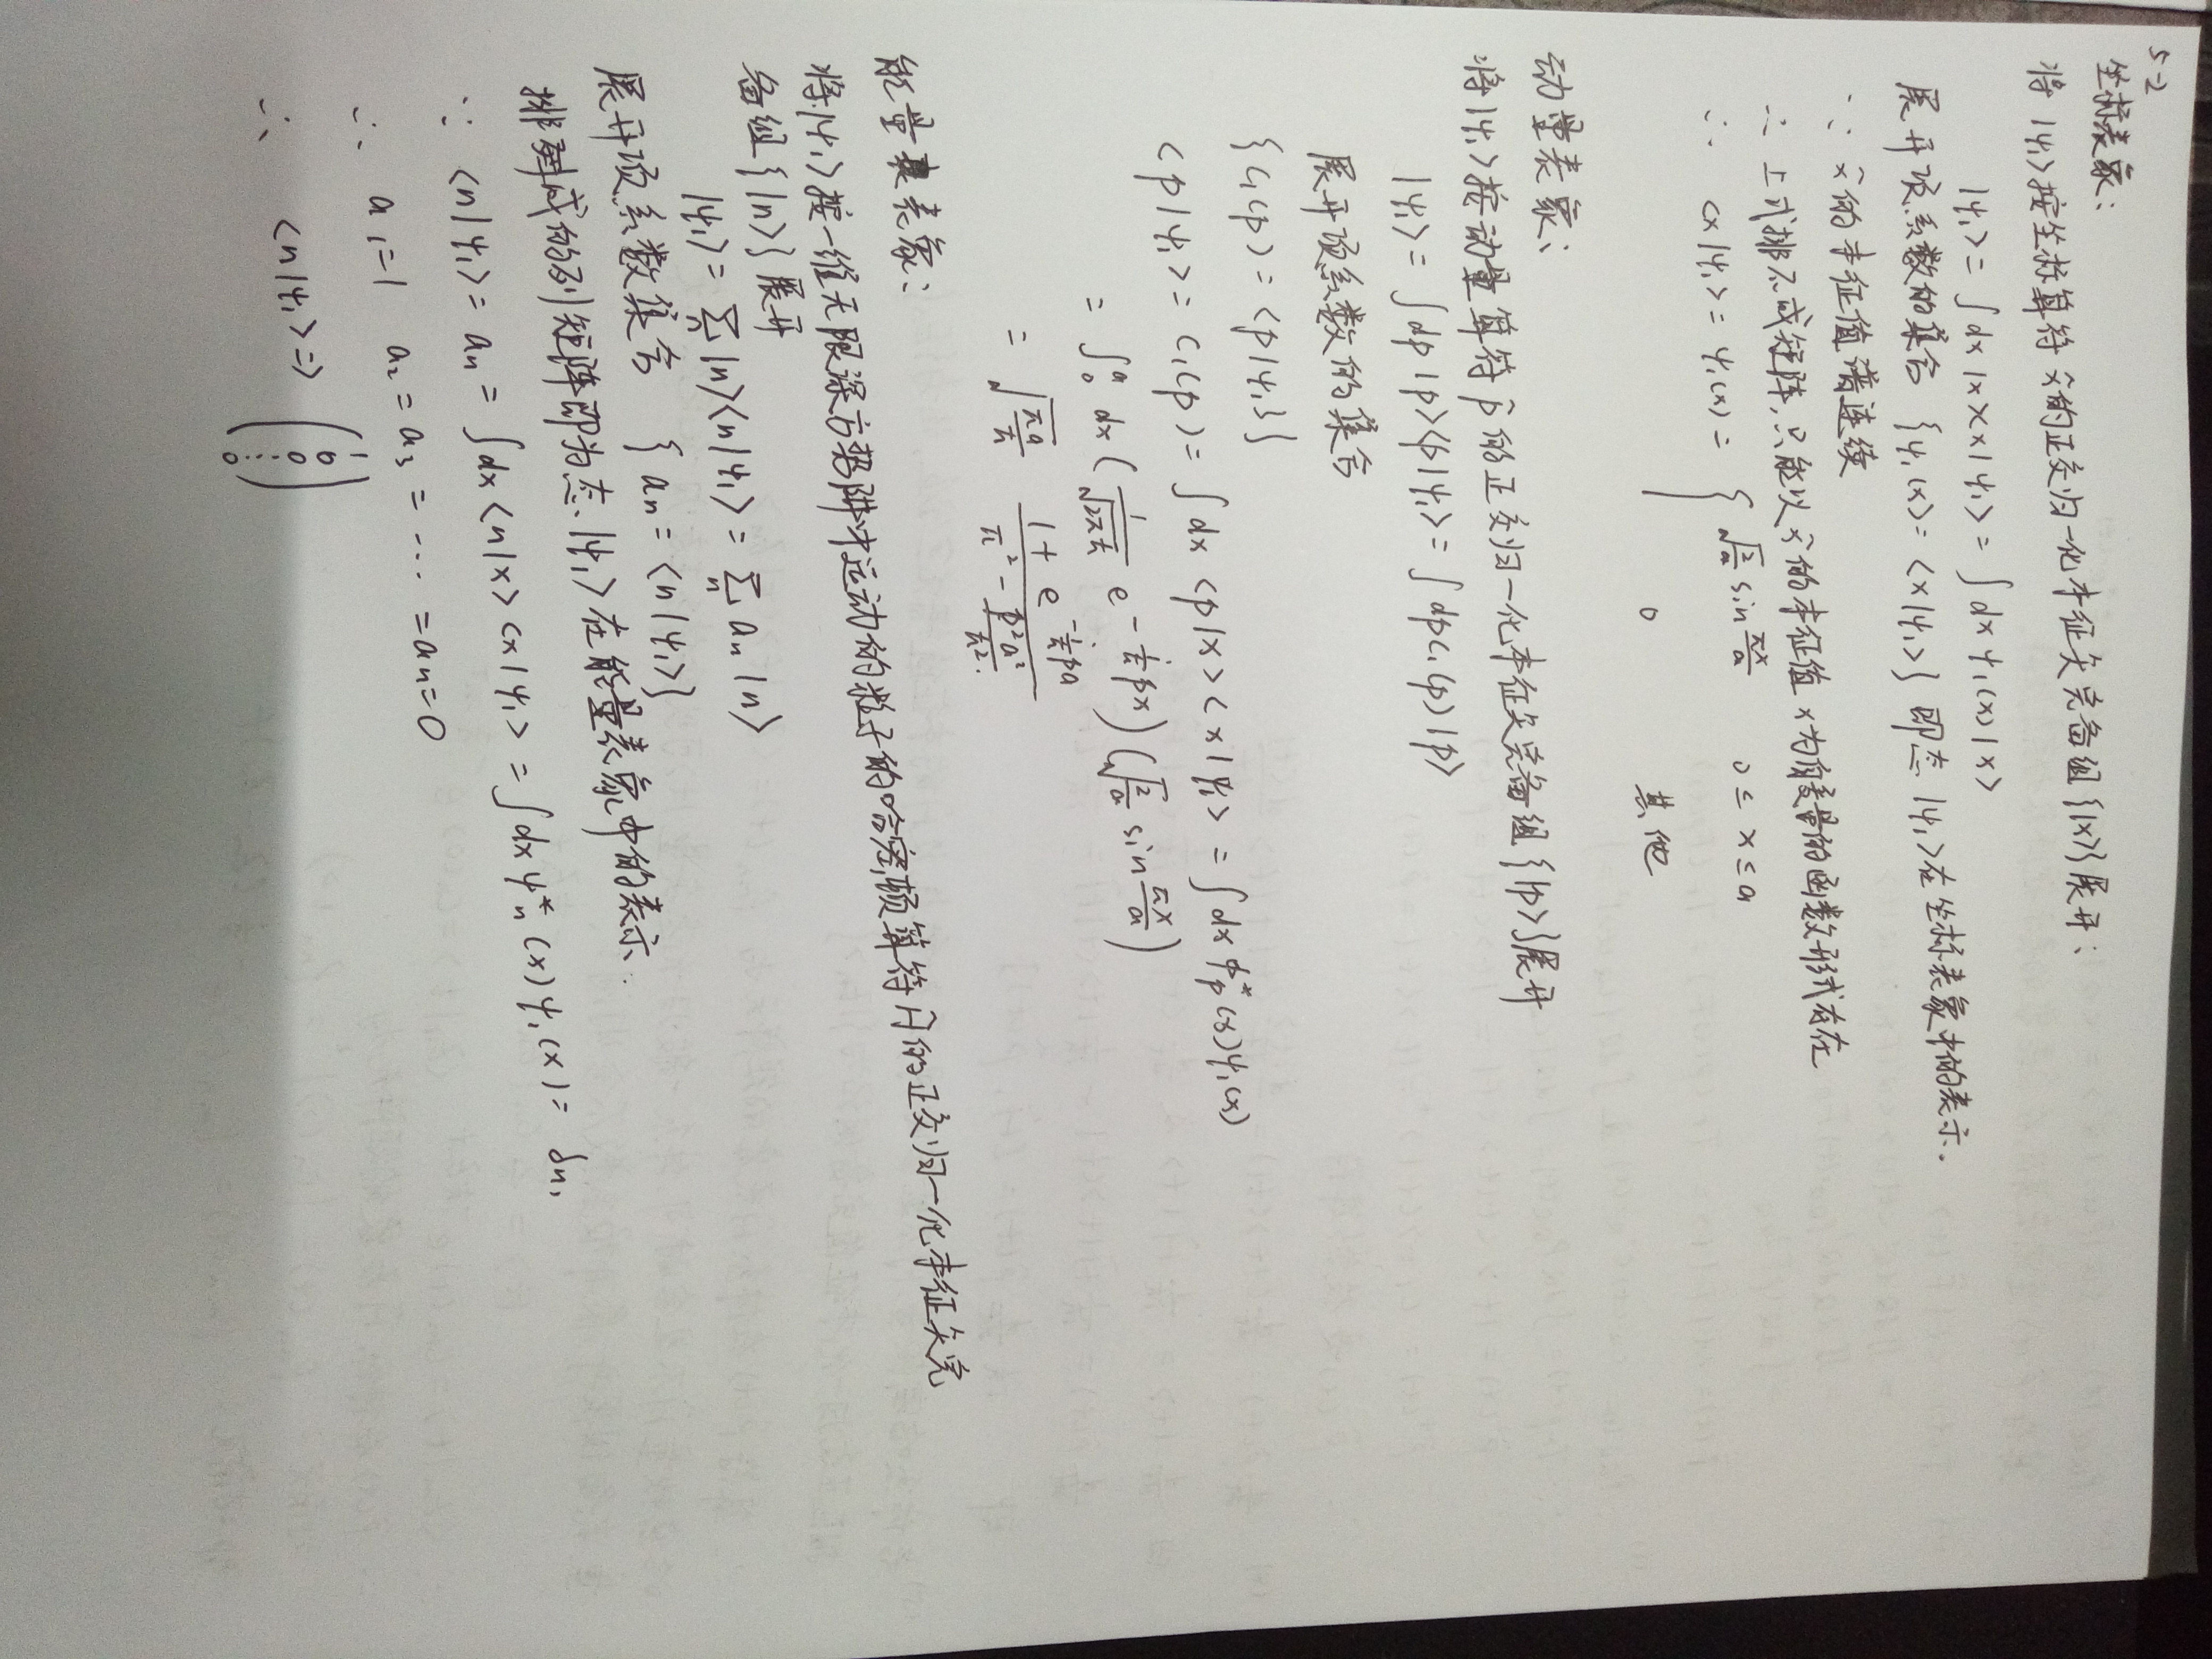 5-2
坐标表象：
将 |ψ₁> 按坐标算符 x̂ 的正交归一化本征矢完备组 {|x>} 展开：
|ψ₁> = ∫dx |x><x|ψ₁> = ∫dx ψ₁(x) |x>
展开项系数的集合 {ψ₁(x) = <x|ψ₁>} 即态 |ψ₁> 在坐标表象中的表示.
∵ x̂ 的本征值谱连续
∴ 上式排不成矩阵,只能以 x̂ 的本征值 x 为自变量的函数形式存在
∴ <x|ψ₁> = ψ₁(x) = { √(2/a) sin πx/a 0 ≤ x ≤ a
0 其他
动量表象：
将 |ψ₁> 按动量算符 p̂ 的正交归一化本征矢完备组 {|p>} 展开
|ψ₁> = ∫dp |p><p|ψ₁> = ∫dp c₁(p) |p>
展开项系数的集合
{c₁(p) = <p|ψ₁>}
<p|ψ₁> = c₁(p) = ∫dx <p|x><x|ψ₁> = ∫dx φ*ₚ(x) ψ₁(x)
= ∫₀ᵃ dx (1/√(2πħ) e^(-i/ħ px)) (√(2/a) sin πx/a)
= √(πa/ħ) (1 + e^(-i/ħ pa)) / (π² - p²a²/ħ²)
能量表象：
将 |ψ₁> 按一维无限深方势阱中运动的粒子的哈密顿算符 Ĥ 的正交归一化本征矢完
备组 {|n>} 展开
|ψ₁> = Σₙ |n><n|ψ₁> = Σₙ aₙ |n>
展开项系数集合 {aₙ = <n|ψ₁>}
排列成的列矩阵即为态 |ψ₁> 在能量表象中的表示.
∵ <n|ψ₁> = aₙ = ∫dx <n|x><x|ψ₁> = ∫dx ψ*ₙ(x) ψ₁(x) = δₙ₁
∴ a₁=1 a₂=a₃=…=aₙ=0
∴ <n|ψ₁> ⇒ (1 0 0 ⋮ 0)